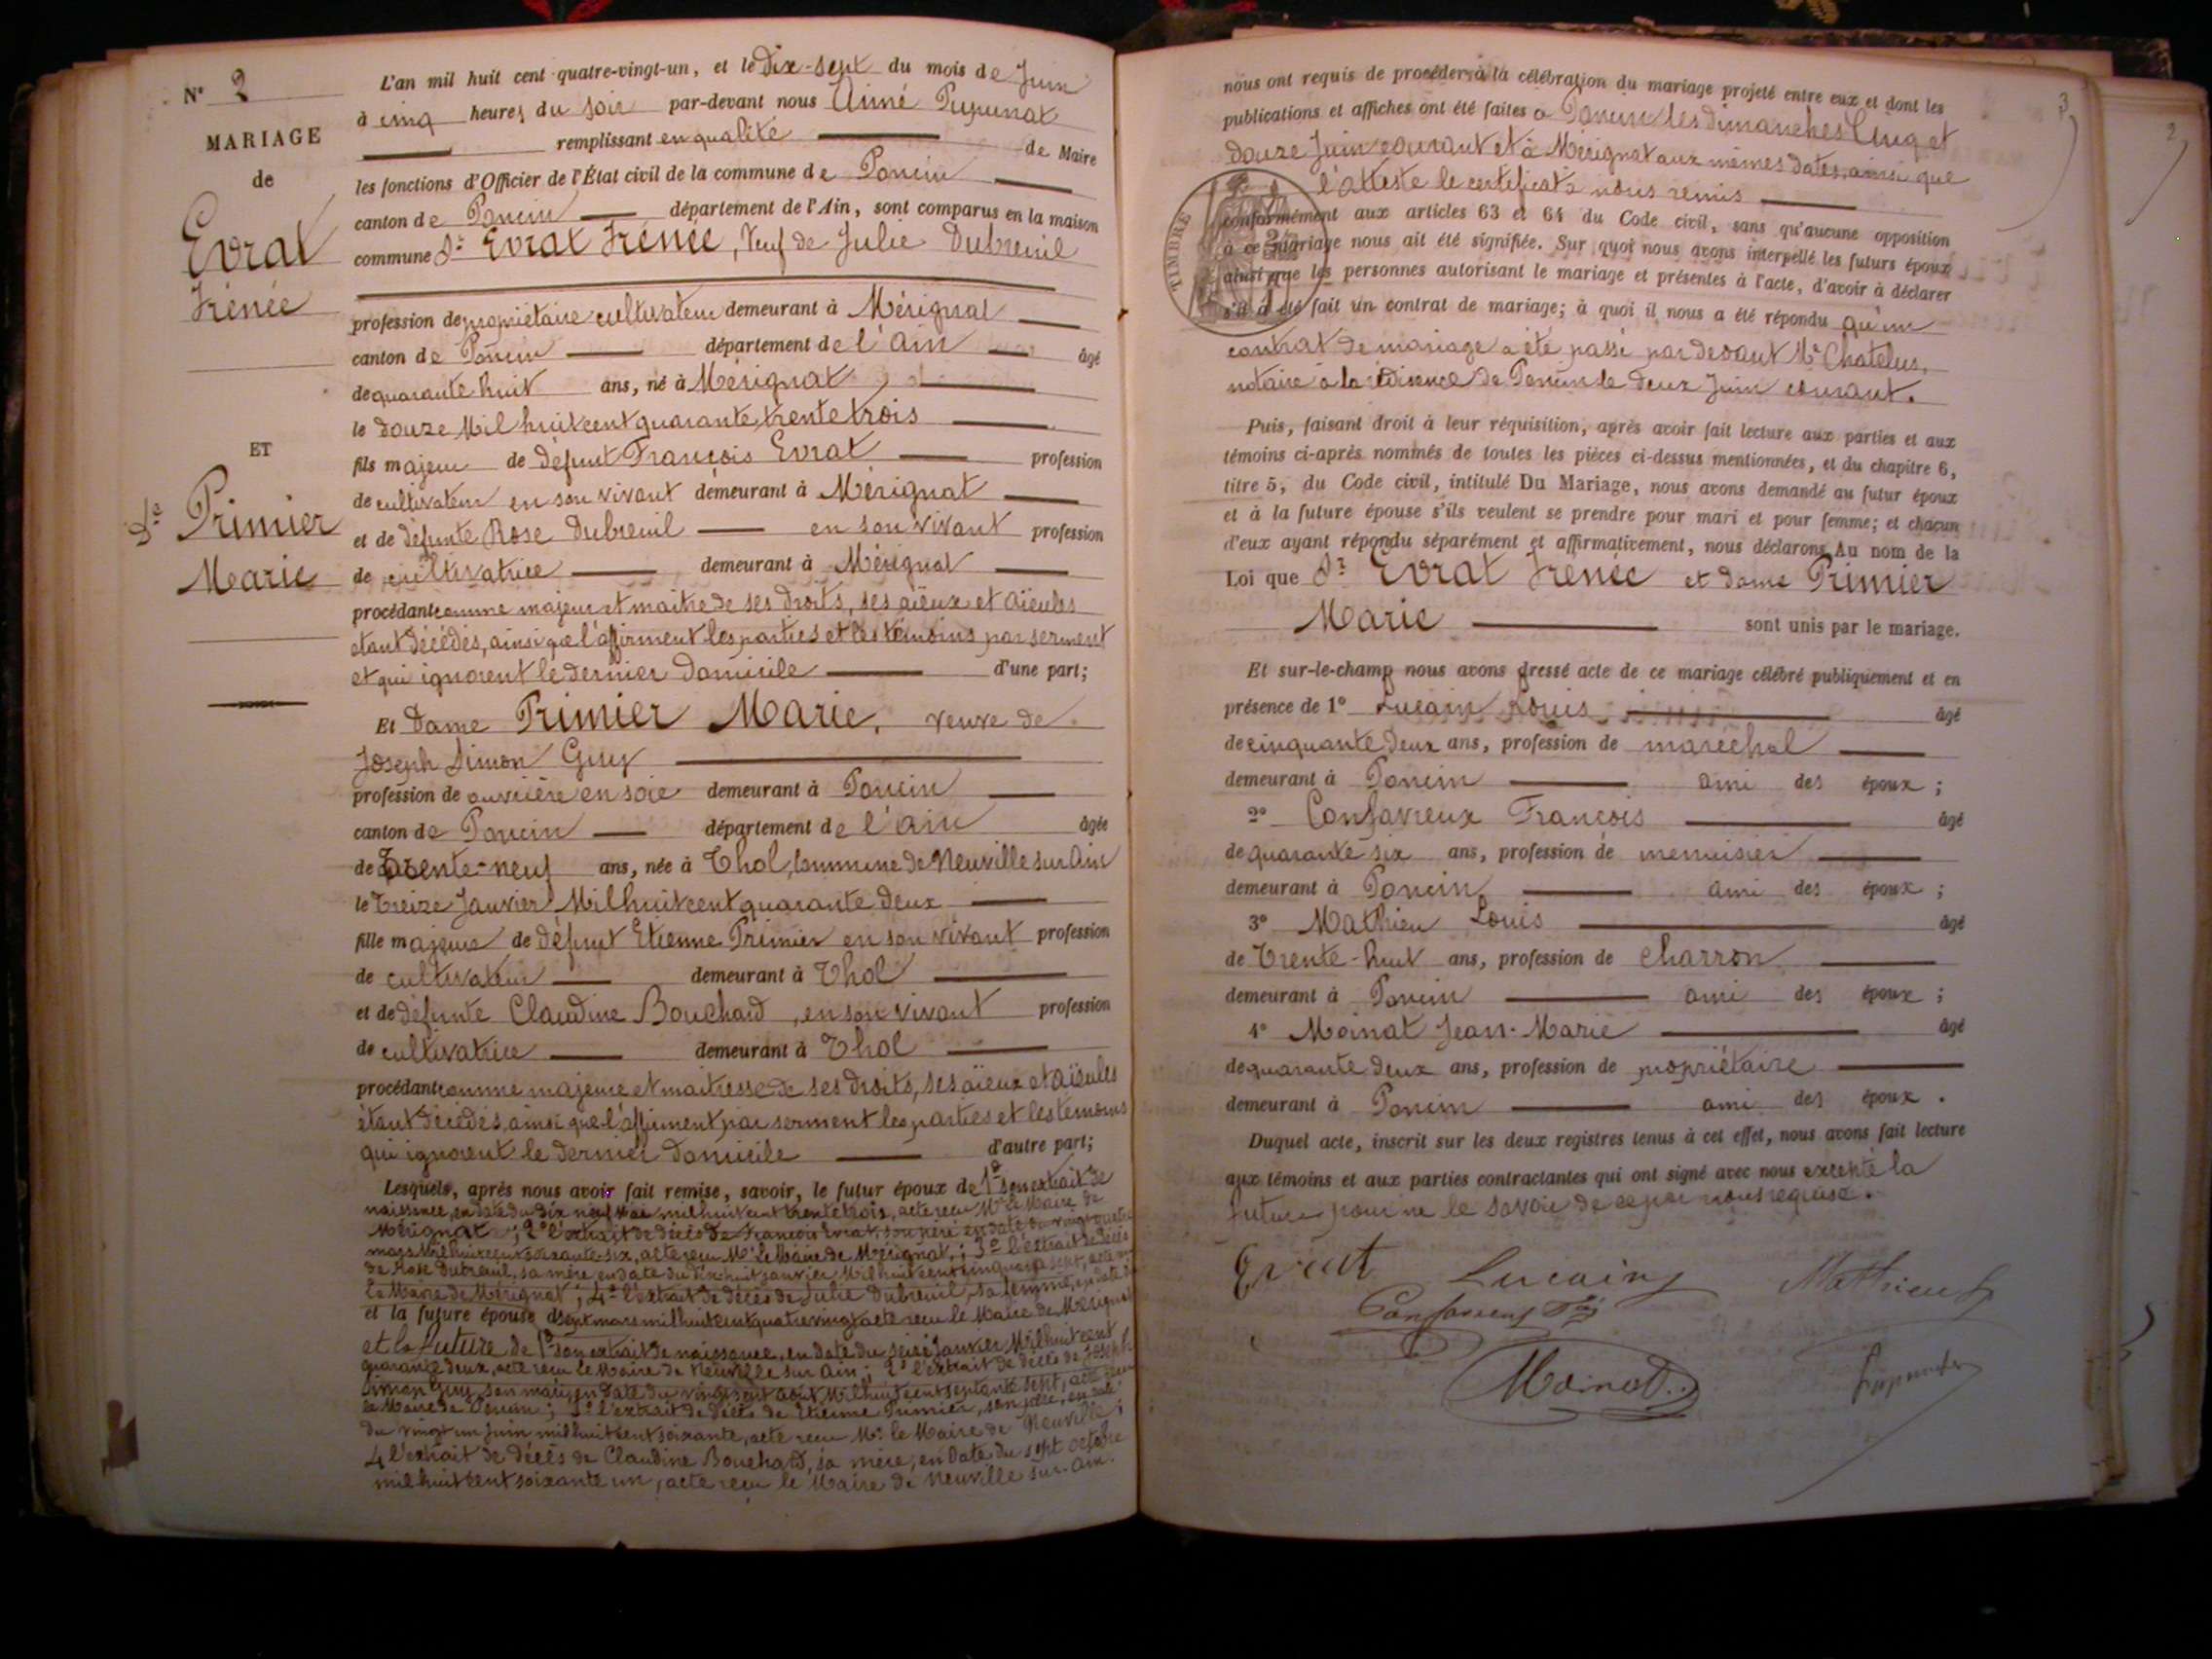 N° 2
MARIAGE
de
Evrat
Irénée
ET
De Primier
Marie
L'an mil huit cent quatre-vingt-un, et le Dix-Sept du mois de Juin
à cinq heures du soir par-devant nous Aimé Pupunat
remplissant en qualité de Maire
les fonctions d'Officier de l'État civil de la commune de Poncin
canton de Poncin département de l'Ain, sont comparus en la maison
commune Sr Evrat Irénée, Veuf de Julie Dubreuil
profession de propriétaire cultivateur demeurant à Mérignat
canton de Poncin département de l'Ain âgé
de quarante huit ans, né à Mérignat,
le douze Mil huit cent quarante, trente trois
fils majeur de défunt François Evrat profession
de cultivateur en son vivant demeurant à Mérignat
et de défunte Rose Dubreuil en son vivant profession
de cultivatrice demeurant à Mérignat
procédant comme majeur et maître de ses droits, ses aïeux et aïeules
étant décédés, ainsi que l'affirment les parties et les témoins par serment
et qui ignorent le dernier domicile d'une part;
Et Dame Primier Marie, veuve de
Joseph Simon Guy
profession de ouvrière en soie demeurant à Poncin
canton de Poncin département de l'Ain âgée
de Trente-neuf ans, née à Thol, Commune de Neuville sur Ain
le Treize Janvier Mil huit cent quarante deux
fille majeure de défunt Etienne Primier en son vivant profession
de cultivateur demeurant à Thol
et de défunte Claudine Bouchard, en son vivant profession
de cultivatrice demeurant à Thol
procédant comme majeure et maîtresse de ses droits, ses aïeux et aïeules
étant décédés, ainsi que l'affirment par serment les parties et les témoins
qui ignorent le dernier domicile d'autre part;
Lesquels, après nous avoir fait remise, savoir, le futur époux de 1° son extrait de
naissance, en date du dix neuf Mai mil huit cent trente trois, acte reçu Mr le Maire de
Mérignat; 2° l'extrait de décès de François Evrat, son père en date du vingt quatre
mars Mil huit cent soixante-six, acte reçu Mr Le Maire de Mérignat; 3° l'extrait de décès
de Rose Dubreuil, sa mère en date du dix-huit janvier Mil huit cent cinquante sept, acte reçu
le Maire de Mérignat; 4° l'extrait de décès de Julie Dubreuil, sa femme, en date du
et la future épouse d sept mars mil huit cent quatre vingt acte reçu le Maire de Mérignat
et la future de 1° son extrait de naissance, en date du seize Janvier Mil huit cent
quarante deux, acte reçu le Maire de Neuville sur Ain; 2° l'extrait de décès de Joseph
Simon Guy son mari, en date du vingt sept août Mil huit cent septante sept, acte reçu
le Maire de Poncin; 3° l'extrait de décès de Etienne Primier, son père, en date
du vingt un Juin mil huit cent soixante, acte reçu Mr le Maire de Neuville;
4 l'extrait de décès de Claudine Bouchard, sa mère, en date du sept octobre
mil huit cent soixante un, acte reçu le Maire de Neuville sur-Ain.
3
2
nous ont requis de procéder à la célébration du mariage projeté entre eux et dont les
publications et affiches ont été faites à Poncin les dimanches Cinq et
douze Juin courant et à Mérignat aux mêmes dates, ainsi que
l'atteste le certificat à nous remis
TIMBRE
conformément aux articles 63 et 64 du Code civil, sans qu'aucune opposition
à ce mariage nous ait été signifiée. Sur quoi nous avons interpellé les futurs époux
ainsi que les personnes autorisant le mariage et présentes à l'acte, d'avoir à déclarer
s'il a été fait un contrat de mariage; à quoi il nous a été répondu qu'un
contrat de mariage a été passé par devant Me Chatelus,
notaire à la résidence de Poncin le deux Juin courant.
Puis, faisant droit à leur réquisition, après avoir fait lecture aux parties et aux
témoins ci-après nommés de toutes les pièces ci-dessus mentionnées, et du chapitre 6,
titre 5, du Code civil, intitulé Du Mariage, nous avons demandé au futur époux
et à la future épouse s'ils veulent se prendre pour mari et pour femme; et chacun
d'eux ayant répondu séparément et affirmativement, nous déclarons Au nom de la
Loi que Sr Evrat Irénée et dame Primier
Marie sont unis par le mariage.
Et sur-le-champ nous avons dressé acte de ce mariage célébré publiquement et en
présence de 1° Lucain Louis âgé
de cinquante deux ans, profession de maréchal
demeurant à Poncin ami des époux;
2° Confavreux François âgé
de quarante six ans, profession de menuisier
demeurant à Poncin ami des époux;
3° Mathieu Louis âgé
de Trente-huit ans, profession de charron
demeurant à Poncin ami des époux;
4° Moinat Jean-Marie âgé
de quarante deux ans, profession de propriétaire
demeurant à Poncin ami des époux.
Duquel acte, inscrit sur les deux registres tenus à cet effet, nous avons fait lecture
aux témoins et aux parties contractantes qui ont signé avec nous excepté la
future pour ne le savoir de ce par nous requise.
Evrat Lucain Mathieu L
Confavreux Fois
Moinat Pupunat